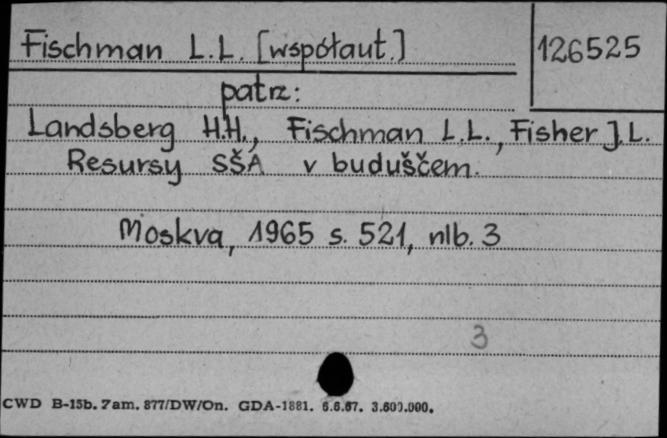 Fischman L.L. [współaut.]
126525
patrz:
Landsberg H.H., Fischman L.L., Fisher J.L.
Resursy SŠA v buduščem.
Moskva, 1965 s. 521, nlb. 3
3
CWD B-15b. Zam. 877/DW/On. GDA-1881. 6.6.67. 3.600.000.